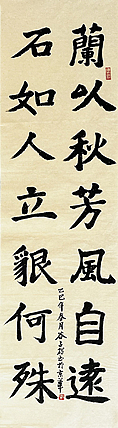 蘭以秋芳風自遠
石如人立貌何殊
乙巳年春月 於京華